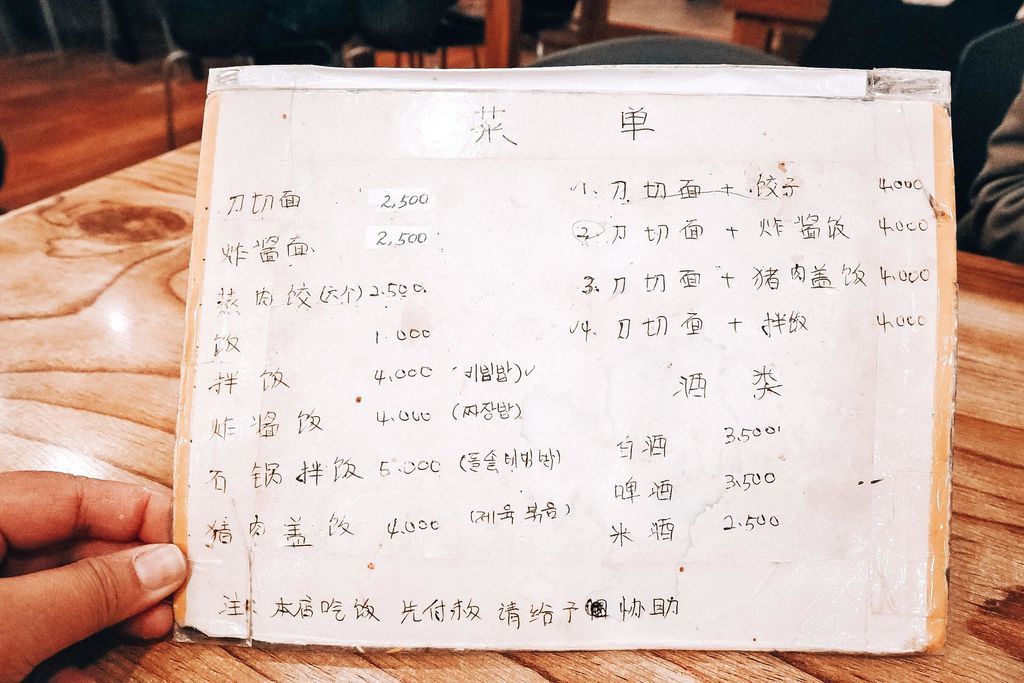 菜 单
刀切面 2,500
炸酱面. 2,500
蒸肉饺(六个) 2.500.
饭 1.000
拌饭 4.000 (비빔밥)✓
炸酱饭 4.000 (짜장밥)
石锅拌饭 5.000 (돌솥비빔밥)
猪肉盖饭 4.000 (제육볶음)
✓1. 刀切面 + 饺子 4.000
2. 刀切面 + 炸酱饭 4.000
3. 刀切面 + 猪肉盖饭 4.000
✓4. 刀切面 + 拌饭 4.000
酒 类
白酒 3.500
啤酒 3.500
米酒 2.500
注: 本店吃饭 先付款 请给予 协助